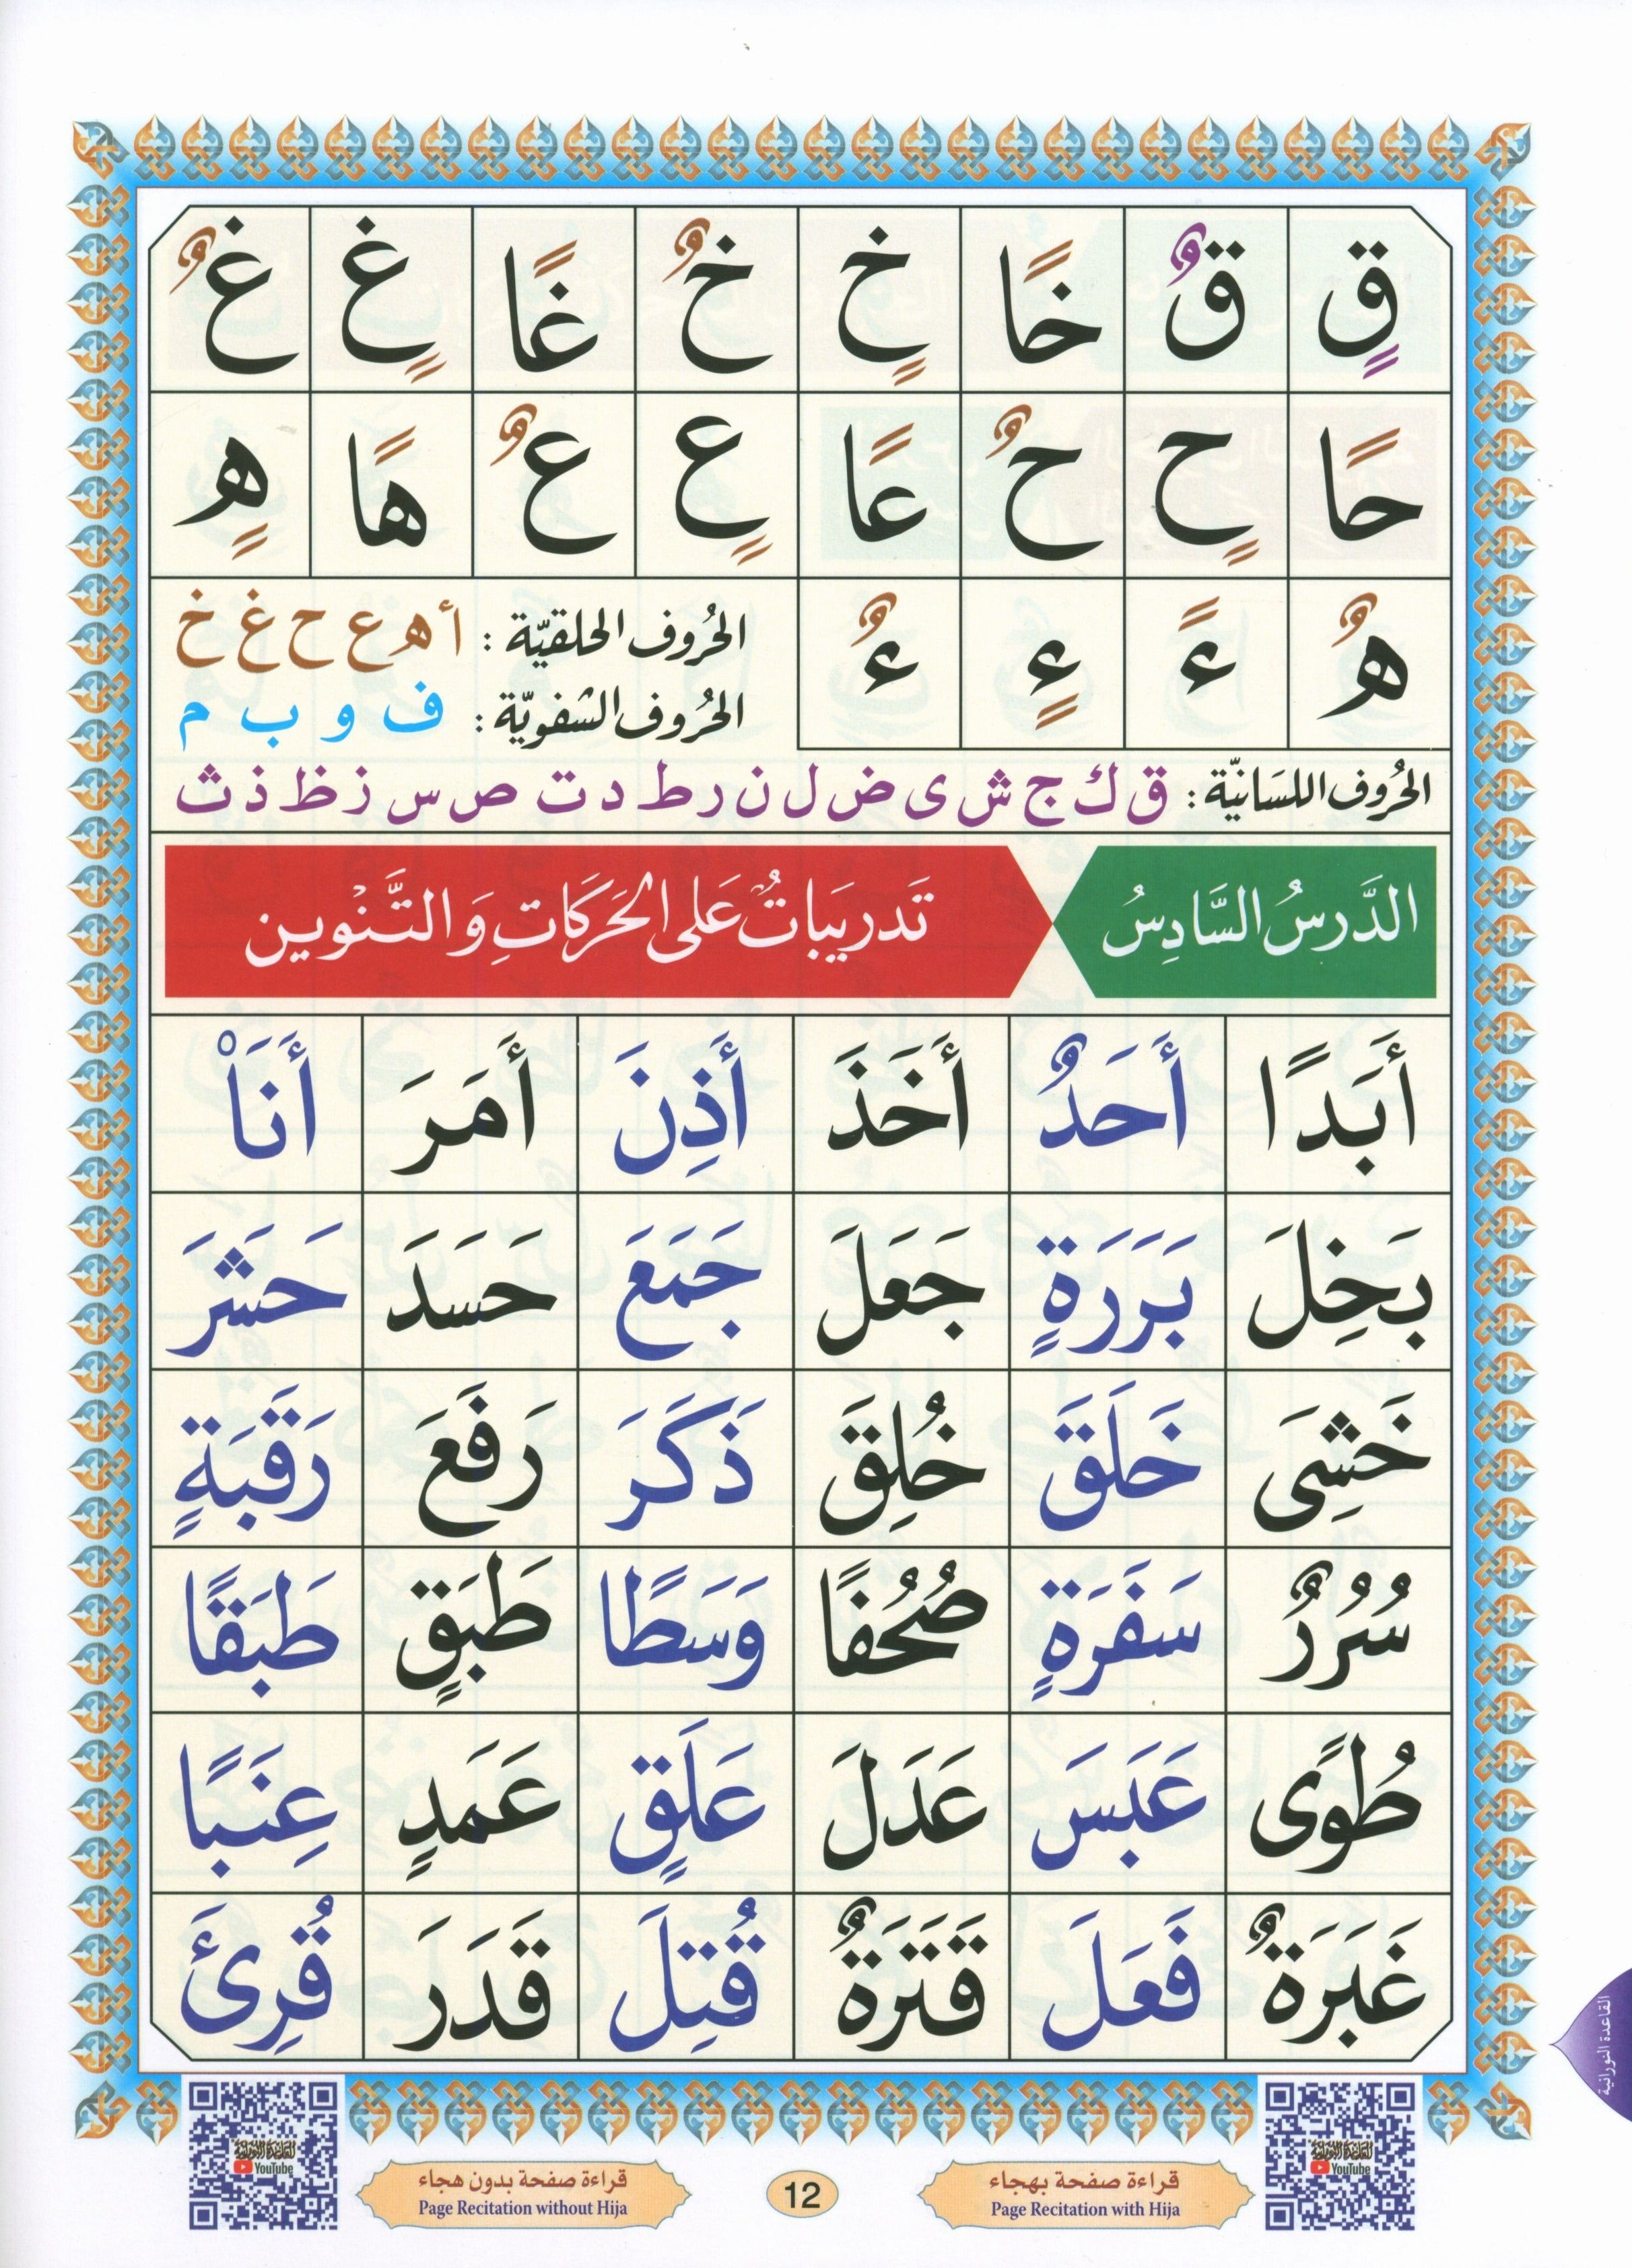 قٍ قٌ خًا خٍ خٌ غًا غٍ غٌ
حًا حٍ حٌ عًا عٍ عٌ هًا هٍ
هٌ ءً ءٍ ءٌ
الحُروف الحلقيّة : أ ه ع ح غ خ
الحُروف الشفويّة : ف و ب م
الحُروف اللسَانيّة : ق ك ج ش ى ض ل ن ر ط د ت ص س ز ظ ذ ث
الدَّرسُ السَّادِسُ
تَدريبَاتٌ عَلى الحَرَكَاتِ وَالتَّنْوين
أَبَدًا أَحَدٌ أَخَذَ أَذِنَ أَمَرَ أَنَا۠
بَخِلَ بَرَرَةٍ جَعَلَ جَمَعَ حَسَدَ حَشَرَ
خَشِىَ خَلَقَ خُلِقَ ذَكَرَ رَفَعَ رَقَبَةٍ
سُرُرٌ سَفَرَةٍ صُحُفًا وَسَطًا طَبَقٍ طَبَقًا
طُوًى عَبَسَ عَدَلَ عَلَقٍ عَمَدٍ عِنَبًا
غَبَرَةٌ فَعَلَ قَتَرَةٌ قُتِلَ قَدَرَ قُرِئَ
القاعدة النورانية
القاعدة النورانية
YouTube
قراءة صفحة بهجاء
Page Recitation with Hija
12
قراءة صفحة بدون هجاء
Page Recitation without Hija
القاعدة النورانية
YouTube